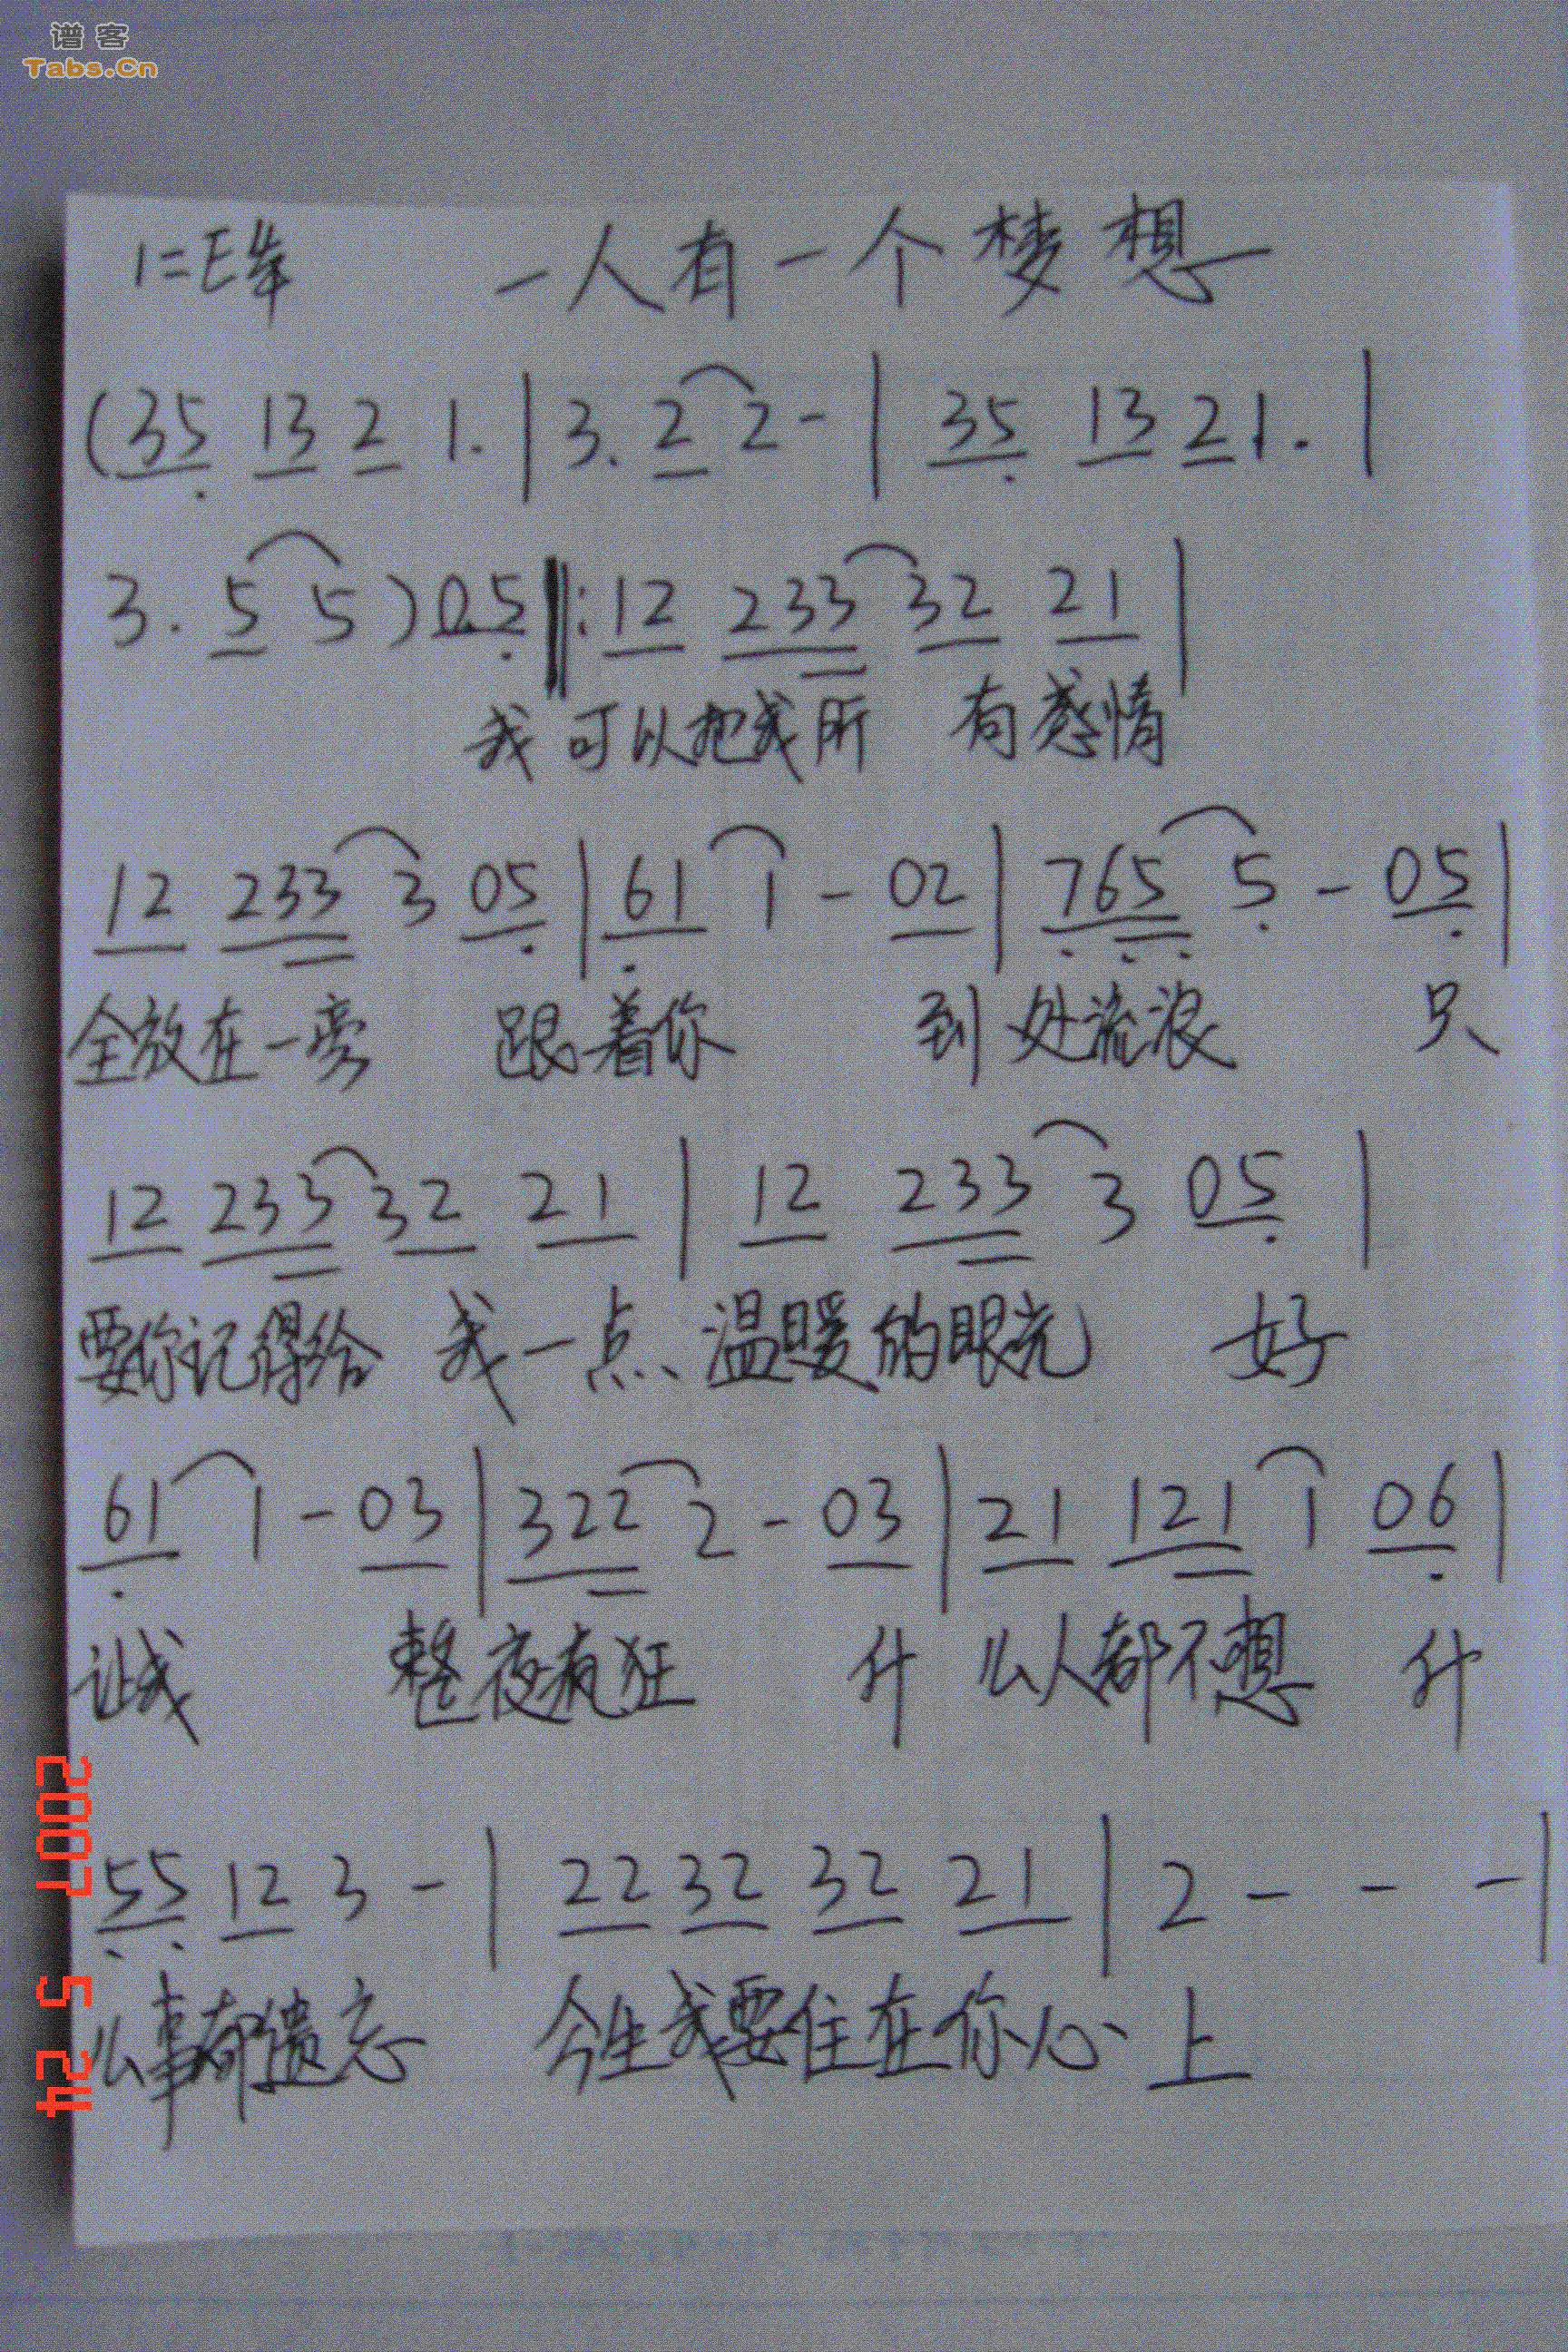 谱客
Tabs.Cn
1=E 4/4 一人有一个梦想
(35 13 2 1. | 3. 2 2 - | 35 13 2 1. |
3. 5 5 ) 05 ‖: 12 233 32 21 |
我 可以把我所 有感情
12 233 3 05 | 61 1 - 02 | 765 5 - 05 |
全放在一旁 跟着你 到处流浪 只
12 233 32 21 | 12 233 3 05 |
要你记得给 我一点温暖的眼光 好
61 1 - 03 | 322 2 - 03 | 21 121 1 06 |
让我 整夜疯狂 什 么人都不想 什
55 12 3 - | 22 32 32 21 | 2 - - - |
么事都遗忘 今生我要住在你心上
2007 5 24